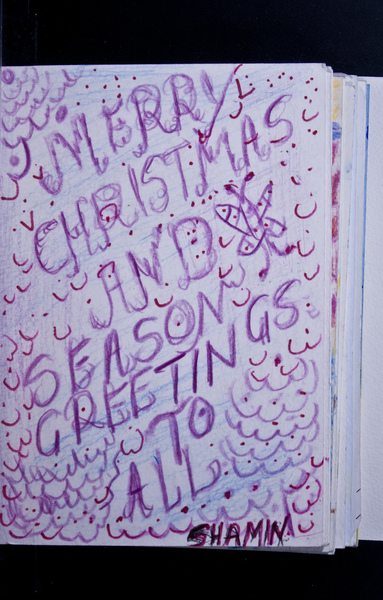 MERRY
CHRISTMAS
AND
SEASON
GREETINGS
TO
ALL
SHAMIM